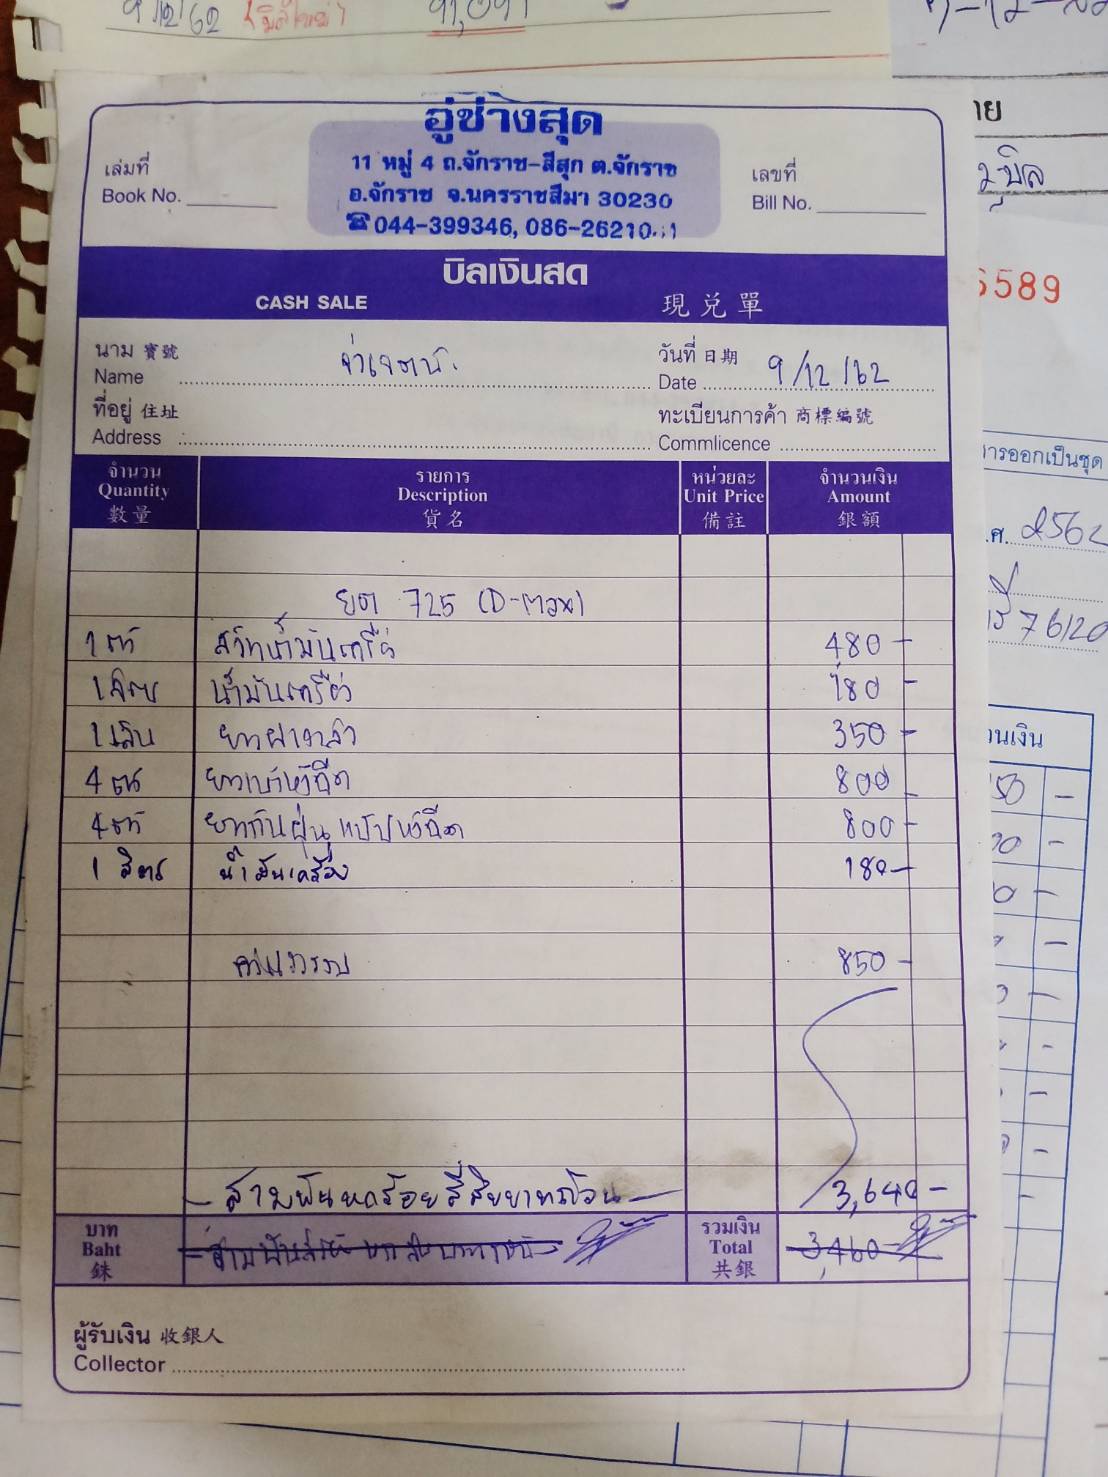 9/12/62
91,091
อู่ช่างสุด
11 หมู่ 4 ถ.จักราช-สีสุก ต.จักราช
อ.จักราช จ.นครราชสีมา 30230
☎044-399346, 086-26210
เล่มที่
Book No.
เลขที่
Bill No.
บิลเงินสด
CASH SALE 現兌單
นาม 寶號
Name
วันที่ 日期
Date 9/12/62
ที่อยู่ 住址
Address
ทะเบียนการค้า 商標編號
Commlicence
จำนวน รายการ หน่วยละ จำนวนเงิน
Quantity Description Unit Price Amount
數量 貨名 備註 銀額
725 (D-max)
1 ตัว สวิทน้ำมันเครื่อง 480 -
1 ลิตร น้ำมันเครื่อง 180 -
1 เส้น ยางฝาวาล์ว 350 -
4 ตัว ยางเบ้าหัวฉีด 800 -
4 ตัว ยางกันฝุ่นแป๊ปหัวฉีด 800 -
1 ลิตร น้ำมันเครื่อง 180 -
ค่าแรงรวม 850 -
- สามพันหกร้อยสี่สิบบาทถ้วน - 3,640 -
บาท
Baht
銖
รวมเงิน
Total
共銀
3,460 -
ผู้รับเงิน 收銀人
Collector
าย
บิล
6589
ารออกเป็นชุด
.ศ. 2562
76120
วนเงิน
50 -